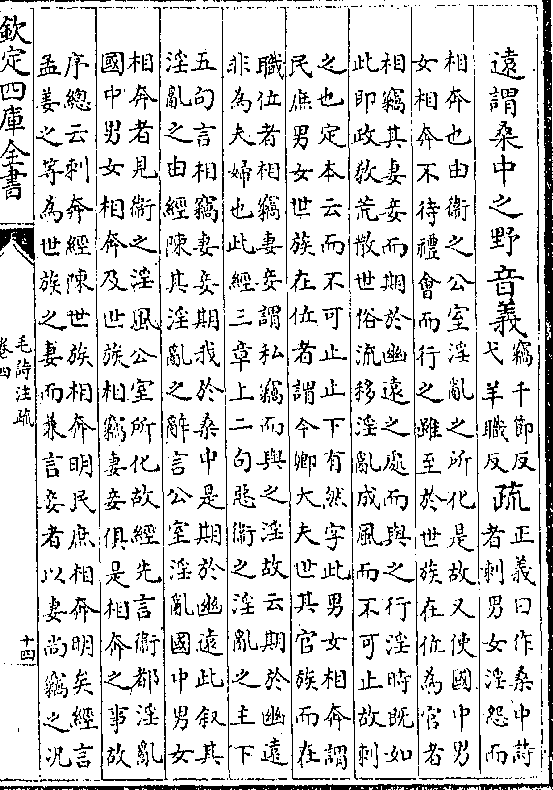 遠謂桑中之野音義竊千節反
弋羊職反疏正義曰作桑中詩
者刺男女淫怨而
相奔也由衛之公室淫亂之所化是故又使國中男
女相奔不待禮會而行之雖至於世族在位為官者
相竊其妻妾而期於幽遠之處而與之行淫時既如
此即政教荒散世俗流移淫亂成風而不可止故刺
之也定本云而不可止止下有然字此男女相奔謂
民庶男女世族在位者謂今卿大夫世其官族而在
職位者相竊妻妾謂私竊而與之淫故云期於幽遠
非為夫婦也此經三章上二句惡衛之淫亂之主下
五句言相竊妻妾期我於桑中是期於幽遠此叙其
淫亂之由經陳其淫亂之辭言公室淫亂國中男女
相奔者見衛之淫風公室所化故經先言衛都淫亂
國中男女相奔及世族相竊妻妾俱是相奔之事故
序總云刺奔經陳世族相奔明民庶相奔明矣經言
孟姜之等為世族之妻而兼言妾者以妻尚竊之況
欽定四庫全書
毛詩注疏
卷四
十四